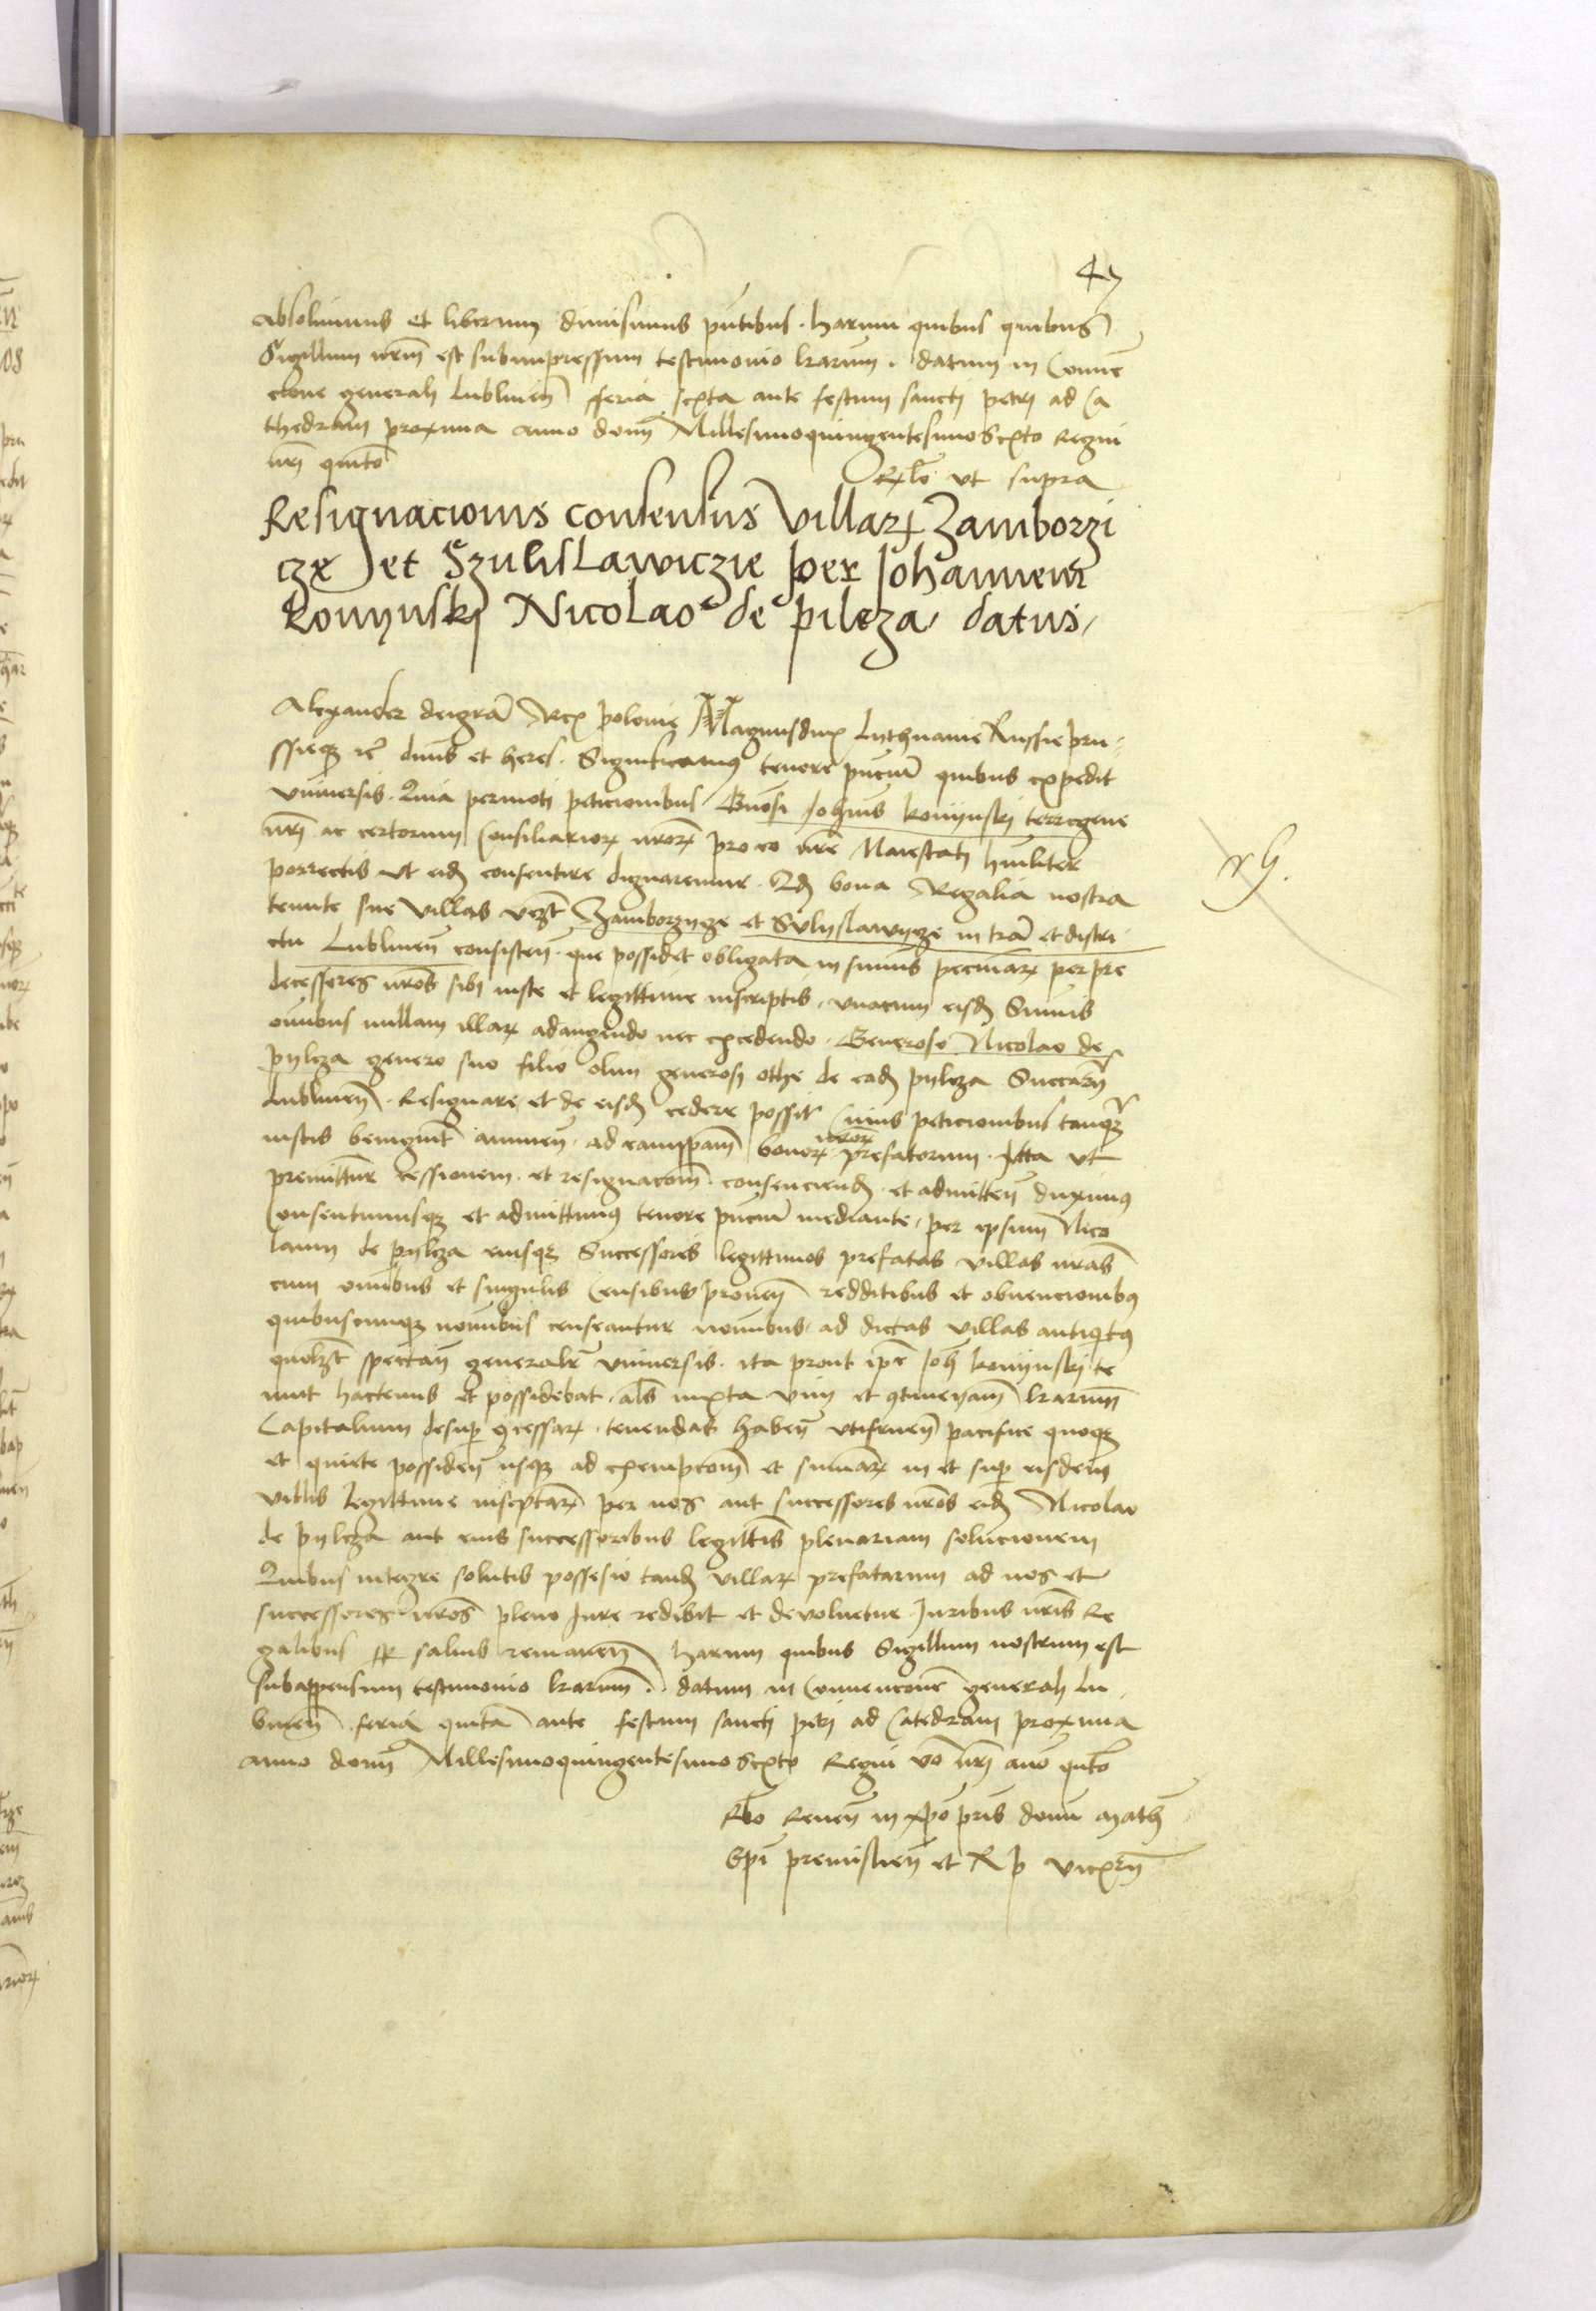 47
absoluimus et liberum dimisimus pntibus. harum quibus quibus
Sigillum nrm est subimpressum testimonio lrarum. datum in Conuen
ctone generali Lublinen feria sexta ante festum sancti petri ad Ca
thedram proxima anno domi Millesimoquingentesimosexto Regni
nri quinto
Relo ut supra
Resignacionis consensus Villar Zamborzi
cze et Szulislawiczie per Johannem
konynskj Nicolao de pilcza datus
Alexander deigra Rex polonie Magnusdux Lythuanie Russie pru
ssieq etc dnus et heres. Significamus tenore pncium quibus expedit
vniuersis. Quia permoti peticionibus Gnosi Johnis konynskj terrigene
nri ac certorum Consiliarior nror pro eo nre Maiestati humiliter
porrectis ut eid consentire dignaremur. Qd bona Regalia nostra
tenute sue villas vczt Zamborzycze et Sulyslawycze in tra et distri
ctu Lublinen consisten. que possidet obligata in sumis pecuniar per pre
decessores nros sibi iuste et legittime inscriptis, vnacum eisd Sumis
omibus nullam illar adaugendo nec excedendo. Generoso Nicolao de
pylcza genero suo filio olim generosi othe de ead pylcza Succam
Lublinen. Resignare et de eisd cedere possit Cuius peticionibus tanq
iustis benignit annuen. ad eam bonor nror prefatorum. Itta ut
premittitur cessionem. et resignacom. consenciend. et admitten duximus
Consentimusq et admittimus tenore pncium mediante, per ipsum Nico
laum de pylcza eiusq Successores legittimos prefatas villas nras
cum omibus et singulis Censibus prouen redditibus et obuencionibus
quibuscumq nomibus censeantur nomibus, ad dictas villas antiqtus
quolzt spectan generalr vniuersis. ita prout ipe Joh konynskj te
nuit hactenus et possidebat. als iuxta vim et gtinenam lrarum
Capitalium desup gcessar. tenendas haben utifruen pacifice quoq
et quiete possiden usq ad exempcom et sumar in et sup eisdem
villis legittime inscptar per nos aut successores nros eid Nicolao
de pylcza aut eius successoribus legittis plenariam solucionem
Quibus integre solutis possesio tand villar prefatarum ad nos et
successores nros pleno Jure redibit et deuoluetur. Juribus nris Re
galibus sp saluis remanen harum quibus Sigillum nostrum est
subappensum testimonio lrarum. datum in Conuencone generali Lu
blinen. feria quinta ante festum sancti petri ad Catedram proxima
anno domi Millesimoquingentesimosexto Regni vo nri ano qnto
Relo Reuen in xpo pris domi Math
Epi premislien et R p vicexrii